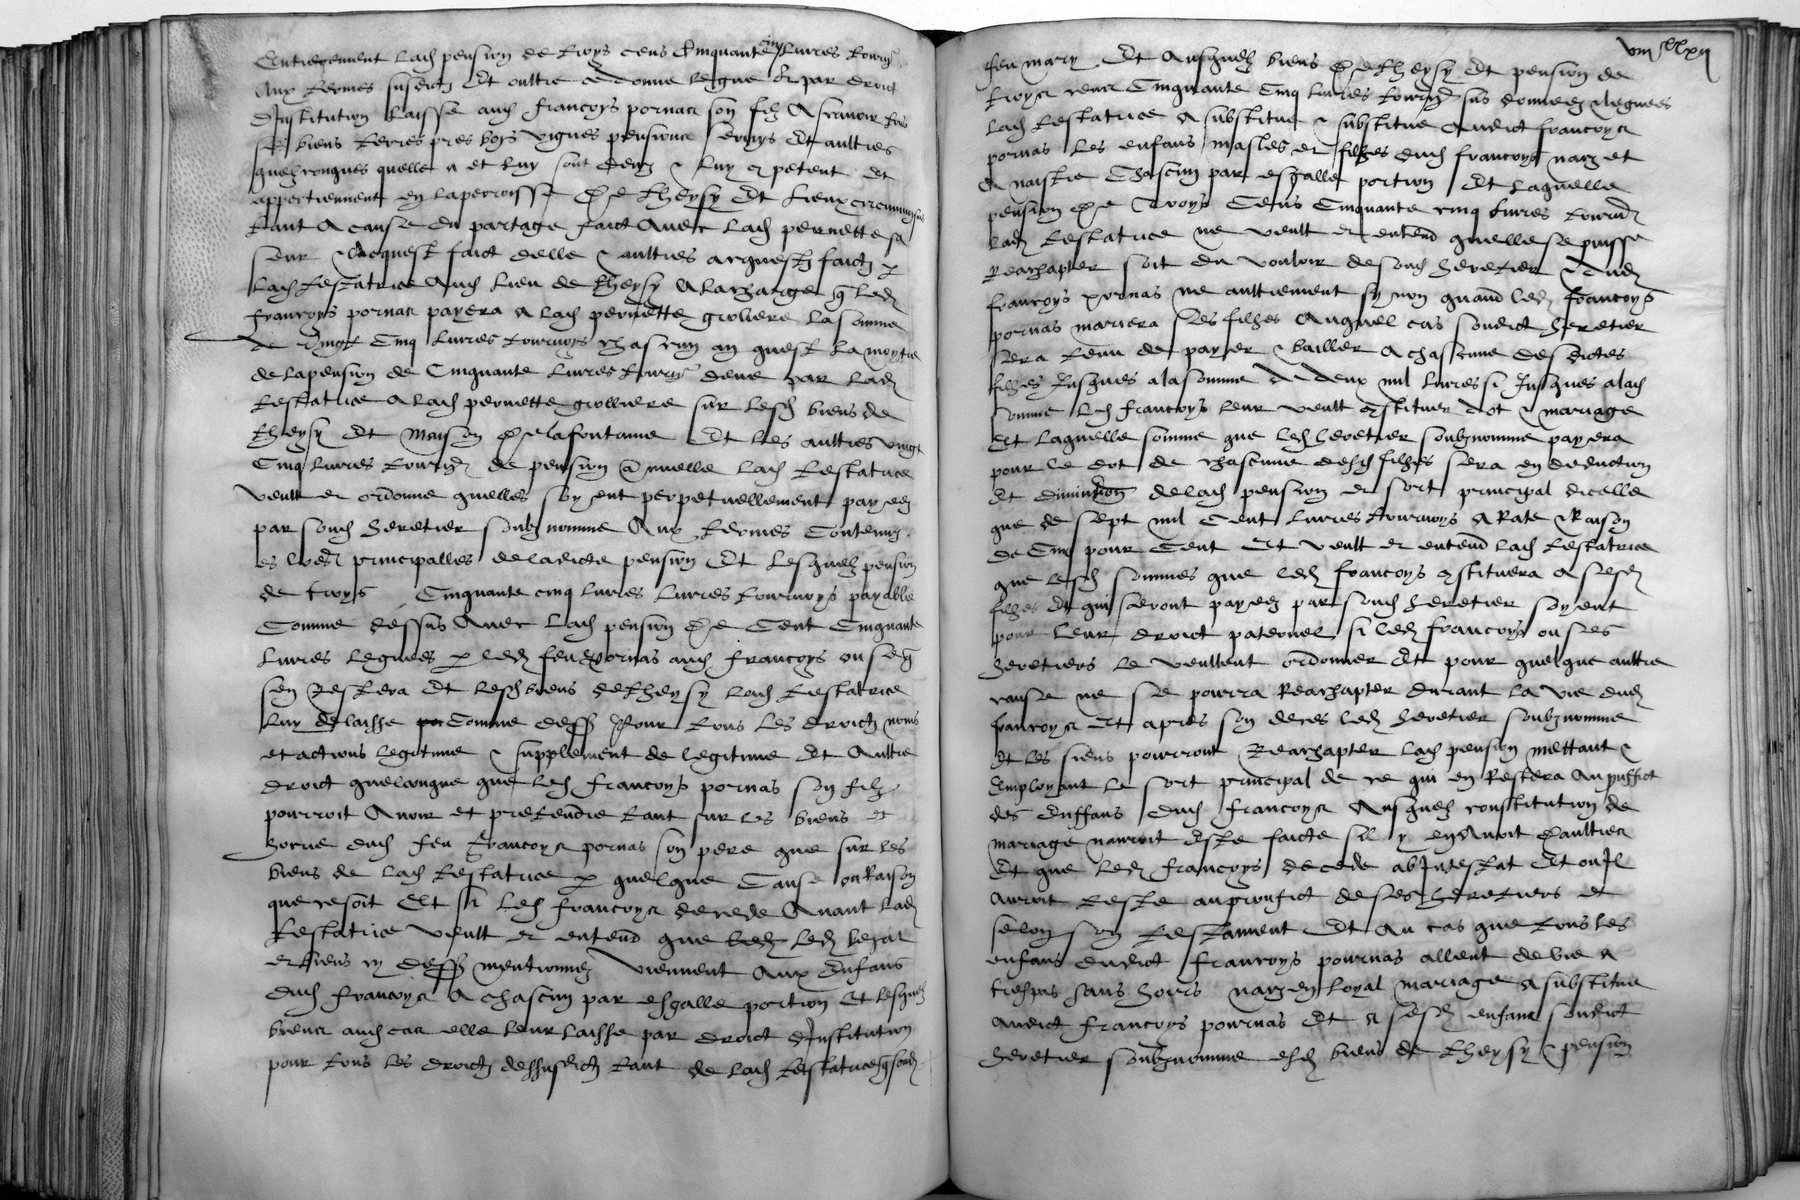 Entierement lad pension de troys cens Cinquante cinq Livres tournz
Aux termes susdictz Et oultre ce donne legue & par droict
dInstitution Laisse aud francoys pornas son filz A scavoir tous
ses biens terres pres boys vignes pensions et aultres
quelzconques quelle a et luy sont deuz & luy cpetent et
appertiennent en la perroisse de Theysy Et Lieux circunvoisins
tant A cause du partage faict Avec lad pernette sa
seur & acquest faict delle & aultres acquestz faictz p
Lad testatrice Aud Lieu de Theysy A la charge q led
francoys pornas payera a lad pernette groliere la somme
de Vingt Cinq Livres tournoys chascun an quest la moytie
de la pension de Cinquante Livres tournz deue par lad
testatrice A lad pernette grolliere sur lesd biens de
Theysy Et Maison de la fontaine Et les aultres vingt
Cinq Livres tournz de pension annuelle lad testatrice
veult et ordonne quelles soyent perpetuellement payees
par sond heretier soubznomme Aux termes Contenuz
es principalles de ladicte pension Et Lesquelz pension
de troys Cinquante cinq Livres Livres tournoys payable
Comme dessus Avec lad pension de Cent Cinquante
Livres leguees p led feu pornas aud francoys ou se q
sen restera Et lesd biens de Theysy lad testatrice
Luy delaisse Comme dess Pour tous les droictz noms
et actions legitime & supplement de legitime Et Aultre
droict quelconque que led francoys pornas son filz
pourroit Avoir et pretendre tant sur les biens et
hoirie dud feu francoys pornas son pere que sur les
biens de lad testatrice p quelque Cause ou Raison
que ce soit Et si led francoys decede Avant lad
testatrice veult et entend que led legat
et biens cy dess mentionnez viennent Aux Enfans
dud francoys A chascun par esgalle portion Et lesquelz
biens aud cas elle leur laisse par droict dInstitution
pour tous les droictz dessusdictz tant de lad testatrice q sond
viii xx xii
feu mary Et Ausquelz biens de Theysy Et pension de
troys cens Cinquante Cinq Livres tournz sus donnez & leguees
lad testatrice A substitue & substitue Audict francoys
pornas les enfans masles et filhes dud francoys naiz et
A naistre Chascun par esgalle portion Et laquelle
pension de Troys Cens Cinquante cinq Livres tournz
lad testatrice ne veult et entend quelle se puisse
Reachapter soit du vouloir de sond heretier & dud
francoys pornas ne aultrement sy non quand led francoys
pornas mariera ses filhes Auquel cas sondict heretier
sera tenu de payer & bailler A chascune desdictes
filhes Jusques a la somme de deux mil livres si Jusques a lad
somme led francoys leur veult cstituer dot & mariage
Et laquelle somme que led heretier soubznomme payera
pour le dot de chascune desd filhes sera en deduction
Et diminution de lad pension et sort principal dicelle
que de sept mil Cent Livres tournoys A Rate & Raison
de Cinq pour Cent Et veult et entend lad testatrice
que lesd sommes que led francoys cstituera A sesd
filhes Et qui seront payees par sond heretier soyent
pour leur droict paternel si led francoys ou ses
heretiers le veullent ordonner Et pour quelque aultre
cause ne se pourra Reachapter durant la vie dud
francoys Et apres son deces led heretier soubznomme
Et les siens pourront Reachapter lad pension mettant &
Employant le sort principal de ce qui en Restera Au prouffict
des Enffans dud francoys Ausquelz constitution de
mariage nauroit Este faicte sil y en Avoit daultres
Et que led francoys decede ab Intestat Et ou Il
auroit teste au proufict de ses heretiers et
selon son testament Et Au cas que tous les
enfans dudict francoys pournas allent de vie a
trespas sans hoirs naiz en loyal mariage A substitue
Audict francoys pournas Et A sesd enfans sondict
heretier soubznomme esd biens de Theysy & pension